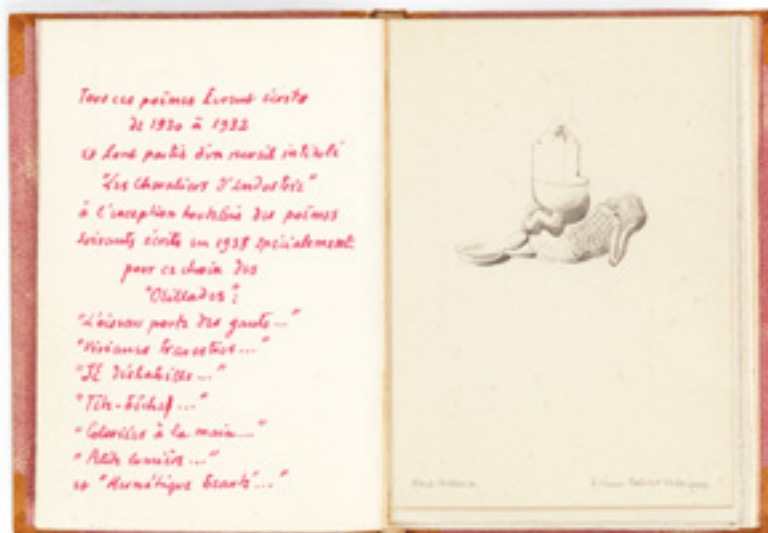 Tous ces poèmes furent écrits
de 1930 à 1932
et font partie d'un recueil intitulé
"Les Chevaliers d'industrie"
à l'exception toutefois des poèmes
suivants écrits en 1938 spécialement
pour ce choix des
"Oeillades":
"L'oiseau porte des gants..."
"Viviane
"Il déshabille..."
"Tête-bêche..."
"Coloriées à la main..."
"Petite lumière..."
et "Hermétique beauté..."